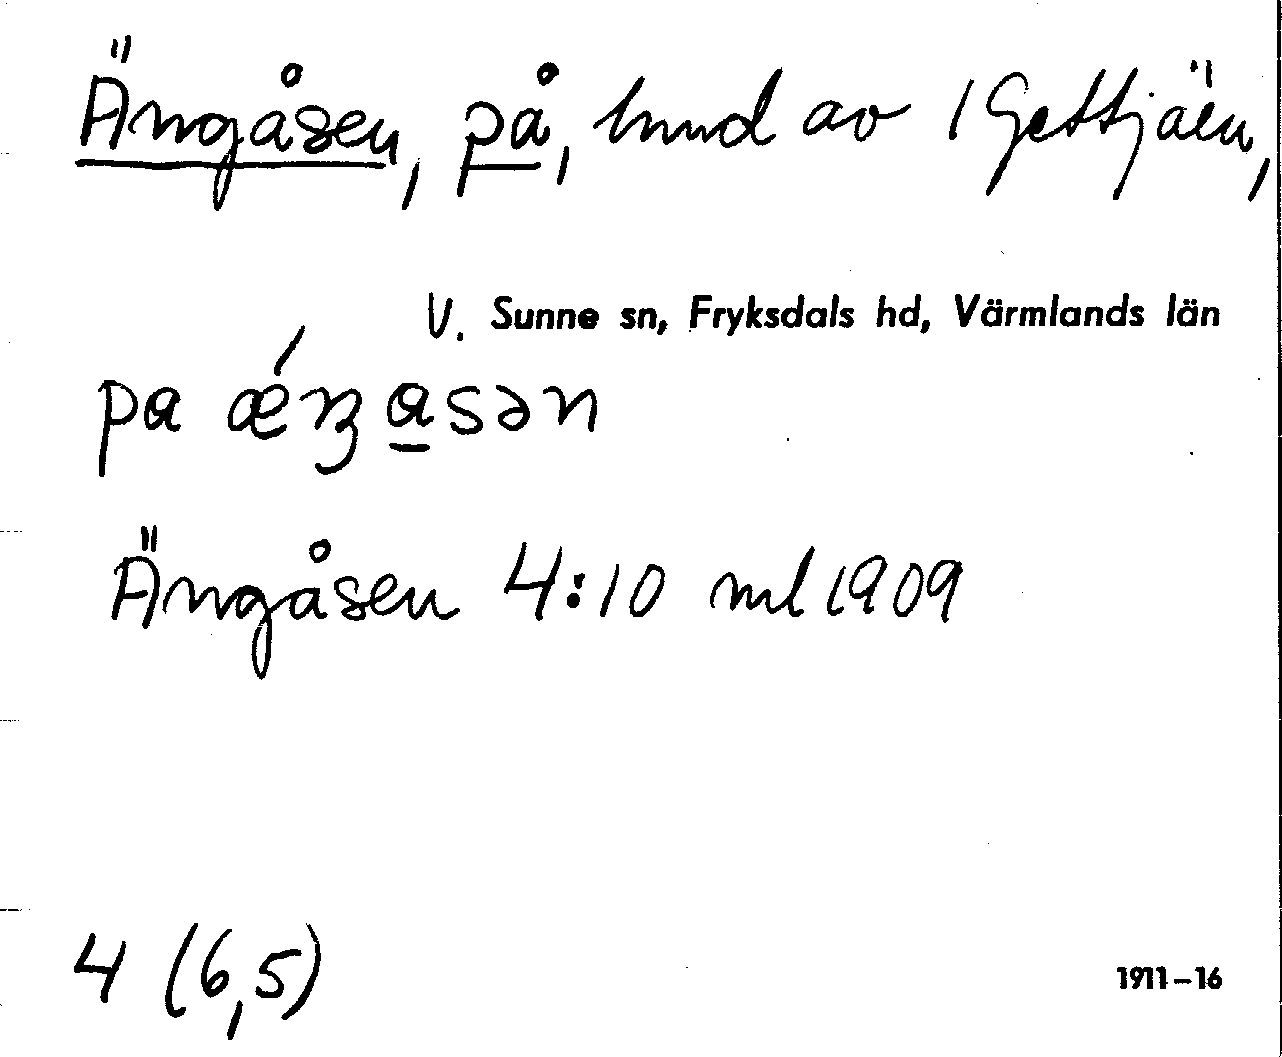 Ängåsen, på, hmd av 1 Gettjäen,
V. Sunne sn, Fryksdals hd, Värmlands län
pa ǽŋasən
Ängåsen 4:10 ml 1909
4 (6,5)
1911-16